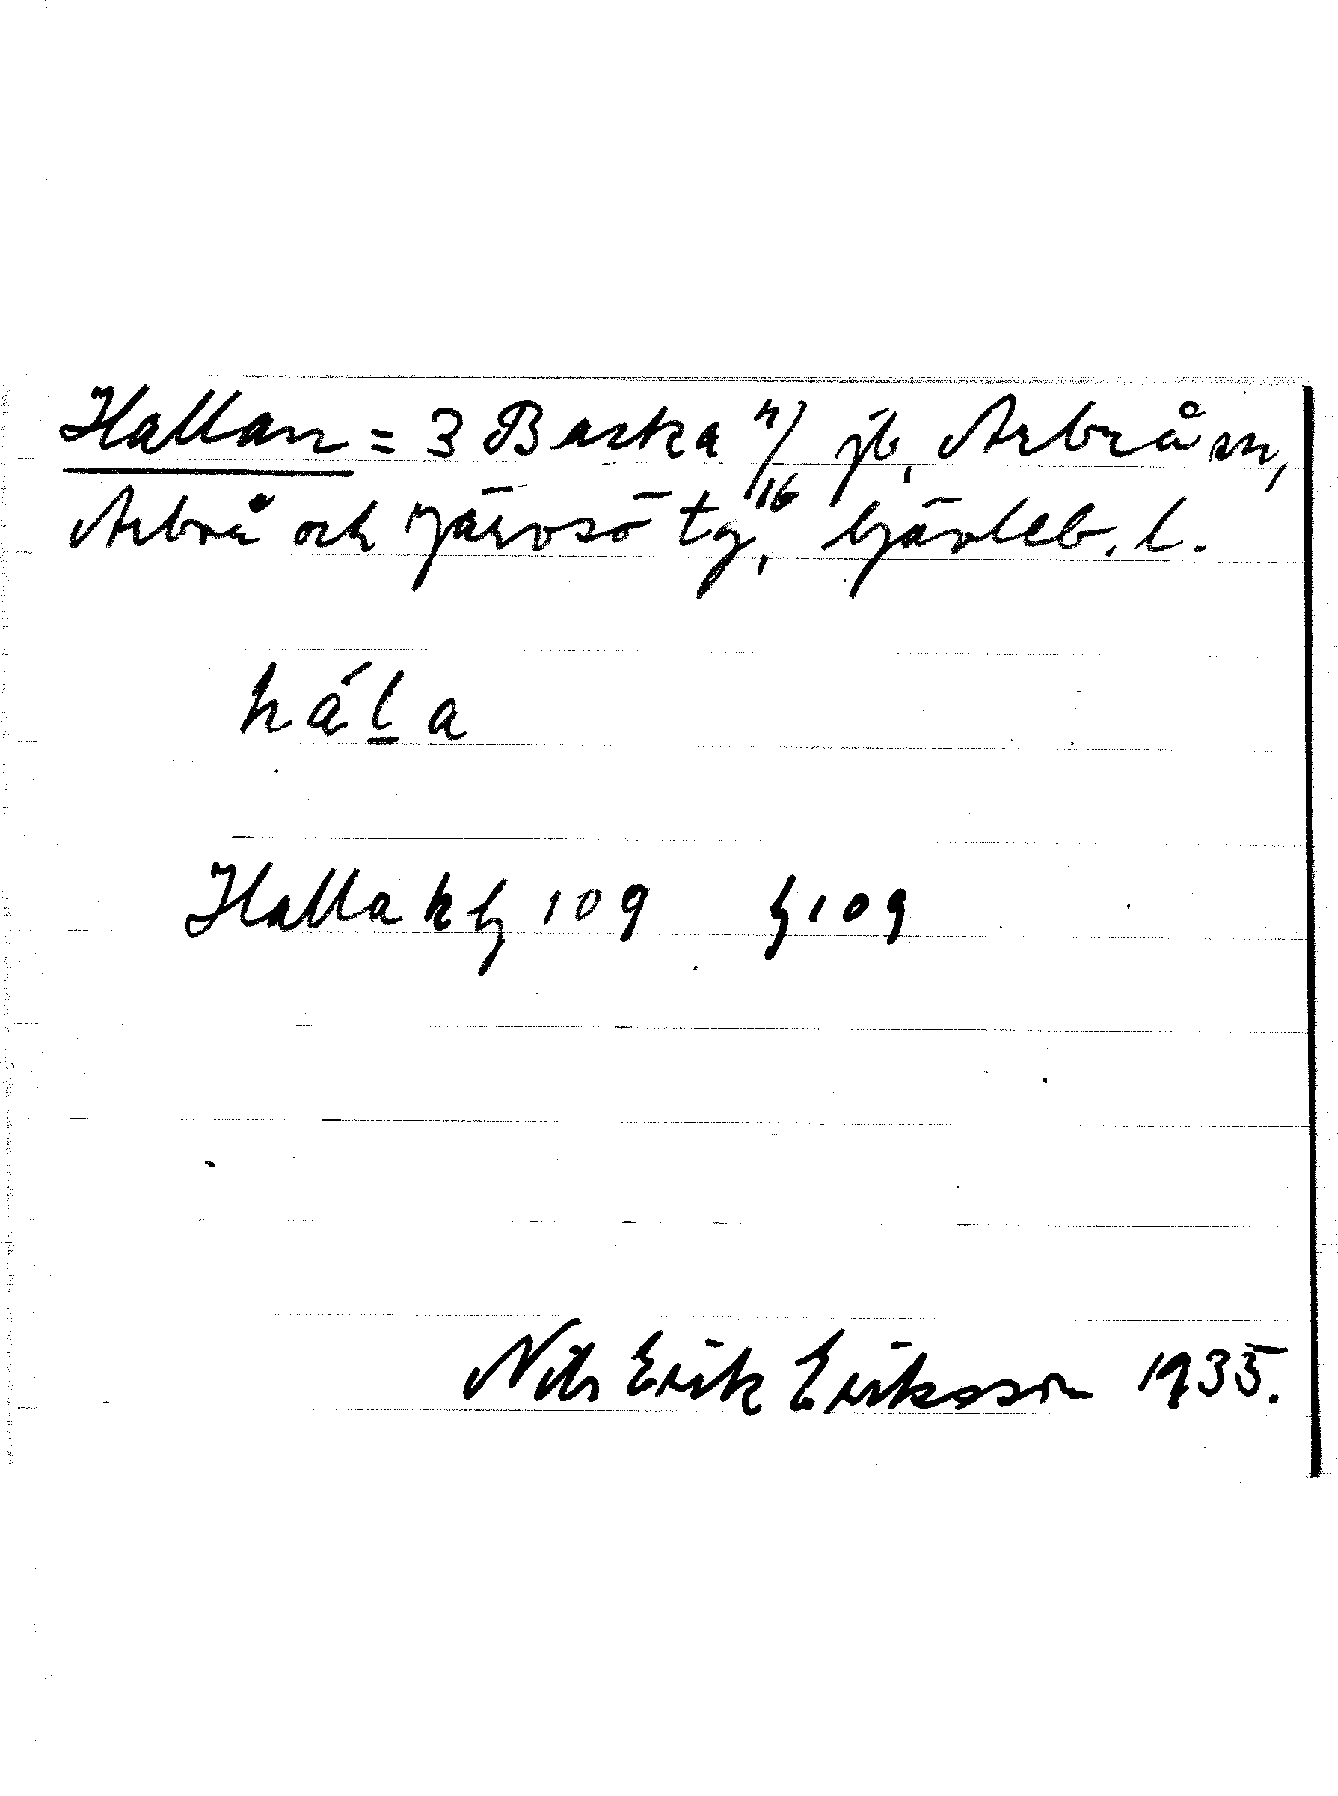 Hallan = 3 Backa 4/16 jb, Arbrå sn,
Arbrå och Järvsö tg, Gävleb. l.
háḻa
Halla kg 109 g 109
Nils Erik Eriksson 1935.